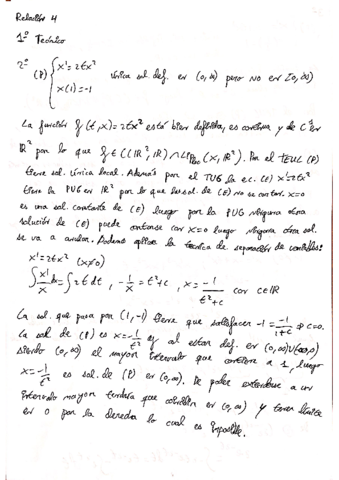 Relación 4
1º Teórico
2º (P) { x' = 2tx²
x(1) = -1 única sol. def. en (0,∞) pero no en [0,∞)
La función f(t,x)=2tx² está bien definida, es continua y de C¹ en
ℝ² por lo que f ∈ C(ℝ²,ℝ) ∩ Lip (x,ℝ²). Por el TEUL (P)
tiene sol. única local. Además por el TUG la ec. (E) x'=2tx²
tiene la PUG en ℝ² por lo que las sol. de (E) no se cortan. x=0
es una sol. constante de (E) luego por la PUG ninguna otra
solución de (E) puede cortarse con x=0 luego ninguna otra sol.
se va a anular. Podemos aplicar la técnica de separación de variables:
x' = 2tx² (x≠0)
∫ x'/x = ∫ 2t dt , -1/x = t²+c , x = -1/(t²+c) con c∈ℝ
La sol. que pasa por (1,-1) tiene que satisfacer -1 = -1/(1+c) ⇒ c=0.
La sol de (P) es x = -1/t² y al estar def. en (0,∞)∪(-∞,0)
siendo (0,∞) el mayor intervalo que contiene a 1, luego
x = -1/t² es sol. de (P) en (0,∞). De poder extenderse a un
intervalo mayor tendría que coincidir en (0,∞) y tener límite
en 0 por la derecha lo cual es imposible.